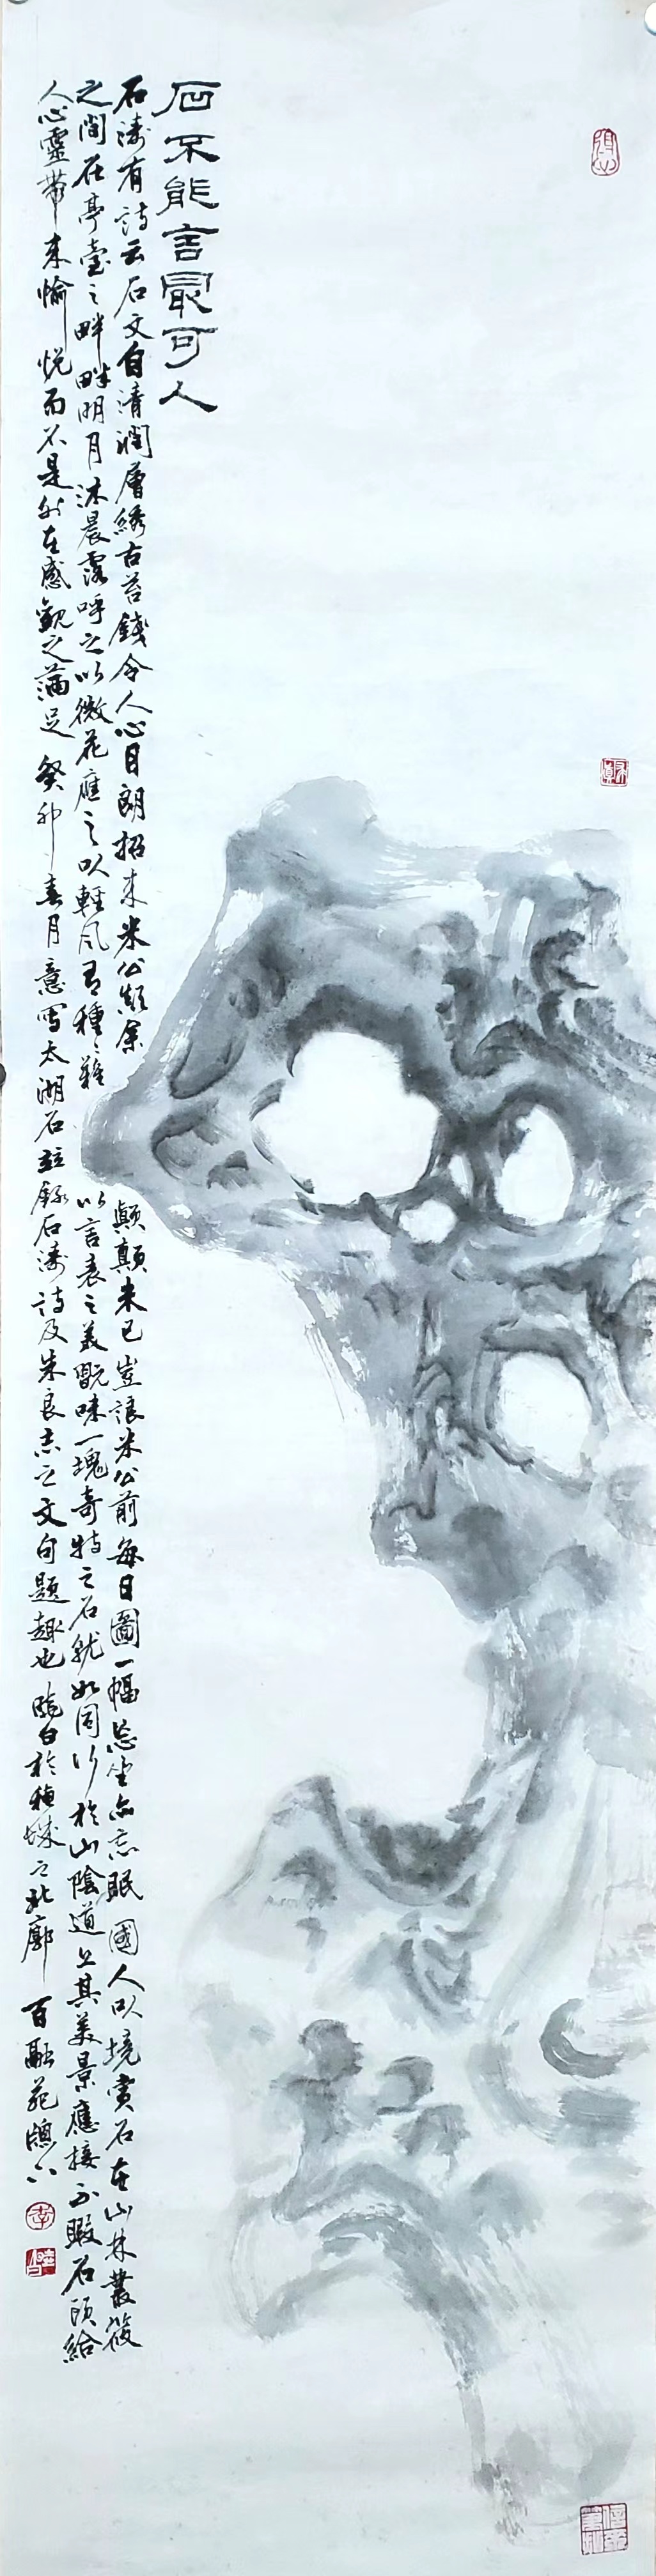 石不能言最可人
石涛有詩云石文自清潤層綉古苔錢令人心目朗招来米公顛余顛顛未已豈讓米公前每日圖一幅忘坐亦忘眠國人以境賞石在山林叢篠
之間在亭臺之畔畔明月沐晨露呼之以微花應之以輕風有種種難以言表之美翫味一塊奇特之石就如同行於山陰道上其美景應接不暇石頭給
人心靈帶来愉悦而不是外在感觀之滿足癸卯春月意寫太湖石並録石涛詩及朱良志之文句題趣也曉白於穗城之北廓百融苑牕下